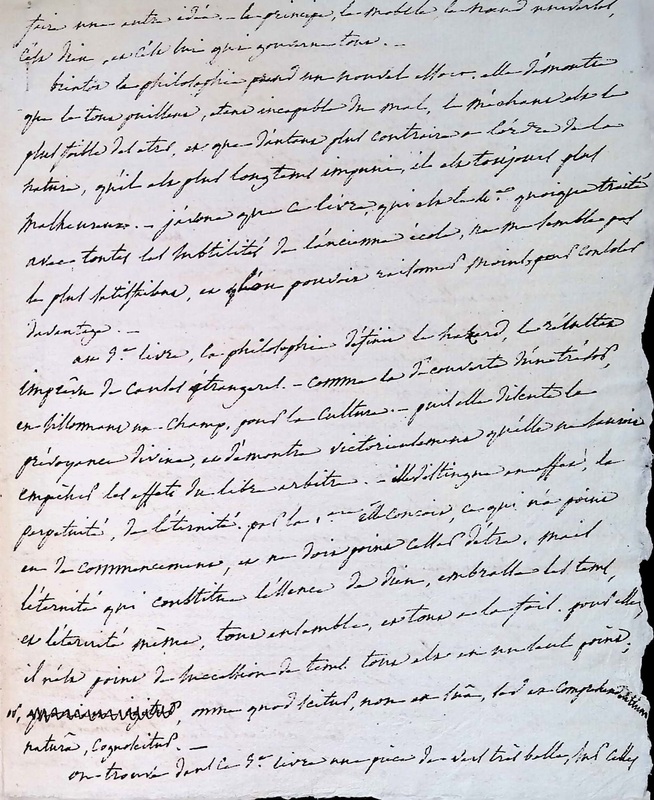 faire une autre idée. – le principe, le mobile le nœud universel,
c'est dieu, et c'est lui qui gouverne tout. –
bientôt la philosophie prend un nouvel essor. elle démontre
que le tout puissant, étant incapable du mal, le méchant est le
plus foible des etres, et que d'autant plus contraire a l'ordre de la
nature, qu'il est plus longtems impuni, il est toujours plus
malheureux. – j'avoue que ce livre, qui est le 4.me quoique traité
avec toutes les subtilités de l'ancienne école, ne me semble pas
le plus satisfaisant, et qu'on pouvoir raisonner moins, pour consoler
davantage. –
au 5.me livre, la philosophie définie le hazard, le résultat
imprévu de causes étrangeres. – comme la découverte d'un trésor,
en sillonnant un champ, pour la culture. – puis elle discute la
prévoyance divine, et démontre victorieusement qu'elle ne sauroit
empêcher les effets du libre arbitre. – elle distingue en effet, la
perpétuité, de l'éternité. par la 1.ere elle conçoit, ce qui n'a point
eu de commencement, et ne doit point cesser d'être. mais
l'éternité qui constitue l'essence de dieu, embrasse les tems,
et l'éternité même, tout ensemble, et tout a la fois. pour elle,
il n'est point de succession de tems. tout est en un seul point,
omne quod scitur, non ex suâ, sed ex comprehendentium
naturâ, cognoscitur. –
on trouve dans ce 5.me livre une pièce de vers très belle, sur celles